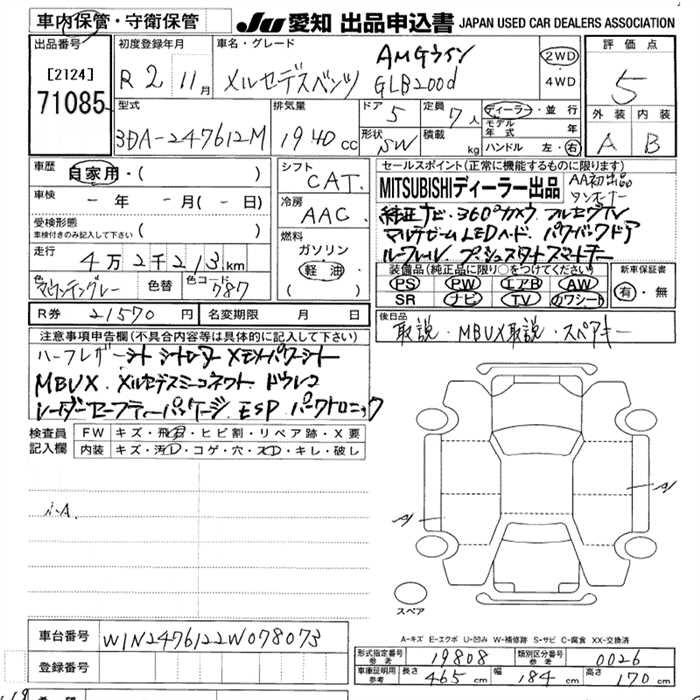 車内保管・守衛保管
JU 愛知 出品申込書 JAPAN USED CAR DEALERS ASSOCIATION
出品番号
[2124]
71085
初度登録年月
R 2 年 11月
車名・グレード
AMGライン
メルセデスベンツ GLB200d
2WD
・
4WD
評価点
5
外装 内装
A B
型式
3DA-247612M
排気量
1940 cc
ドア 5
形状 SW
定員 7人
積載 kg
ディーラー・並行
モデル年式 年
ハンドル 左・右
車歴 自家用・( )
車検 - 年 - 月(- 日)
受検形態
車検付きのみ記入して下さい ( )
走行
4万2千213km
色 マウンテングレー 色替 色コード 787
シフト
CAT.
冷房
AAC.
燃料
ガソリン
軽油
( )
セールスポイント(正常に機能するものに限ります)
MITSUBISHIディーラー出品 AA初出品
ワンオーナー
純正ナビ・360°カメラ フルセグTV
マルチビームLEDヘッド・パワーバックドア
ルーフレール プッシュスタートスマートキー
装備品(純正品に限り○をつけてください)
PS PW エアB AW
SR ナビ TV カワシート
新車保証書
有・無
R券 21570円 名変期限 月 日
後日品
取説・MBUX取説・スペアキー
注意事項申告欄(不具合内容等は具体的に記入して下さい)
ハーフレザーシート シートヒーター メモリパワーシート
MBUX メルセデスミーコネクト ドラレコ
レーダーセーフティーパッケージ ESP パークトロニック
検査員記入欄
FW キズ・飛石・ヒビ割・リペア跡・X要
内装 キズ・汚れ・コゲ・穴・スレ・キレ・破レ
A
A
スペア
A-キズ E-エクボ U-凹み W-補修跡 S-サビ C-腐食 XX-交換済
車台番号 W1N2476122W078073
登録番号
形式指定番号 参考 19808 類別区分番号 参考 0026
車庫証明用 参考 長さ 465 cm 幅 184 cm 高さ 170 cm